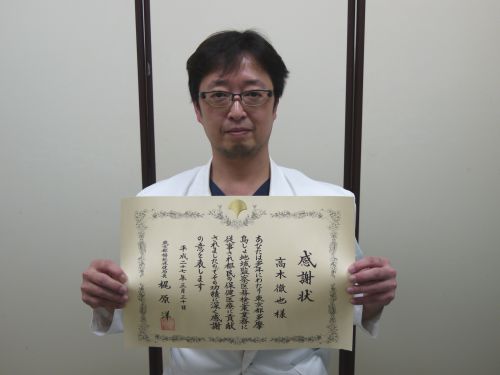 感謝状
高木徹也様
あなたは多年にわたり東京都多摩
島しょ地域監察医務検案業務に
従事され都民の保健医療に貢献
されましたのでその功績に深く感謝
の意を表します
平成二十七年三月三十日
東京都福祉保健局長 梶原洋